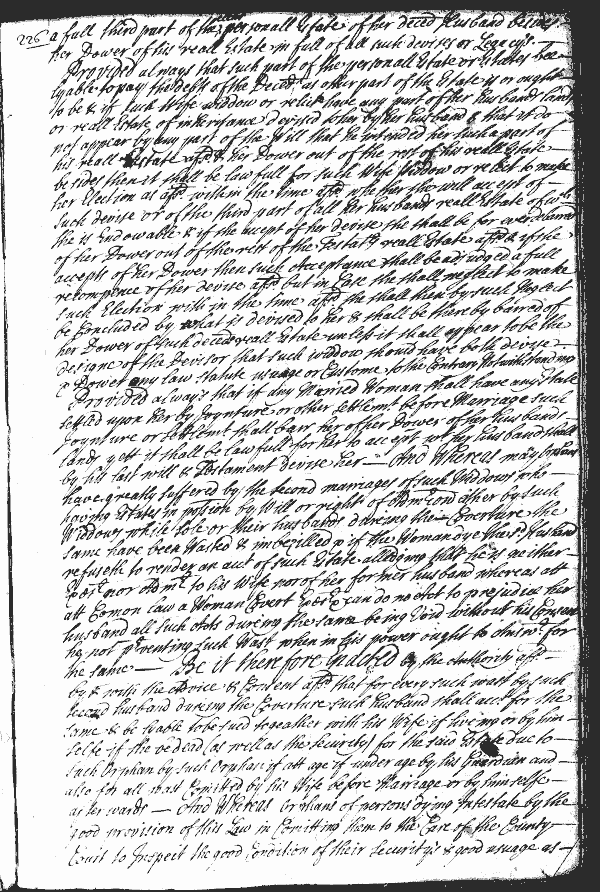 226
a full third part of the personall Estate of her deced Husband besides
her Dower of his reall Estate in full of all such devises or Legacys.
Provided always that such part of the personall Estate or Estates bee
lyable to pay the debts of the Deced. as other part of the Estate is or ought
to be & if such Wife widdow or relict have any part of her husbands land
or reall Estate of inheritance devised to her by her husband & that it do
not appear by any part of the Will that he intended her such a part of
his reall Estate afsd & her Dower out of the rest of his reall Estate
besides then it shall be lawfull for such Wife Widdow or relict to make
her Election as afsd. within the time afsd whether she will accept of
such devise or of the third part of all her husbands reall Estate of wch
she is Endowable & if she accept of her devise she shall be for ever
of her Dower out of the rest of the Testats reall Estate afsd & if she
accepts of her Dower then such Acceptance shall be adjudged a full
recompence of her devise afsd but in Case she shall neglect to make
such Election within the time afsd she shall then by such Neglect
be Concluded by what is devised to her & shall be thereby barred of
her Dower of such deceds reall Estate unless it shall appear to be the
designe of the Devisor that such widdow should have both devise
& Dower any law statute usuage or Custome to the Contrary Notwithstanding
Provided always that if any Married Woman shall have any Estate
settled upon her by Joynture or other settlemt. before Marriage such
Joynture or settlemt shall barr her of her Dower of her husbands
lands yett it shall be lawfull for her to accept what her husband shall
by his last will & Testament devise her — And Whereas many Orphans
have greatly suffered by the second marriages of such Widdows who
having Estates in possion by Will or right of Admicon after by such
Widdows while sole or their husbands dureing the Coverture the
same have been Wasted & imbezilled & if the Woman dye the sd. Husband
refuseth to render an acct of such Estate alledging that he is neither
Exor. nor Admr. to his Wife nor of her former husband whereas att
att Comon law a Woman Covert Exor. can do no act to prejudice her
husband all such Acts during the same being Void without his Consent
he not preventing such Wast when in his power ought to answr. for
the same — Be it therefore Enacted by the authority afsd.
by & with the advice & Consent afsd that for every such wast by such
second husband during the Coverture such husband shall acct for the
same & be lyable to be sued togeather with his Wife if liveing or by him
selfe if she be dead (as well as the security) for the said Estate due to
such Orphan by such Orphan if att age if under age by his Guardian and
also for all wast Comitted by his Wife before Marriage or by himselfe
afterwards — And Whereas Orphans of persons dying Intestate by the
good provision of this Law in Comitting them to the Care of the County
Court to Inspect the good Condition of their securitys & good usuage as